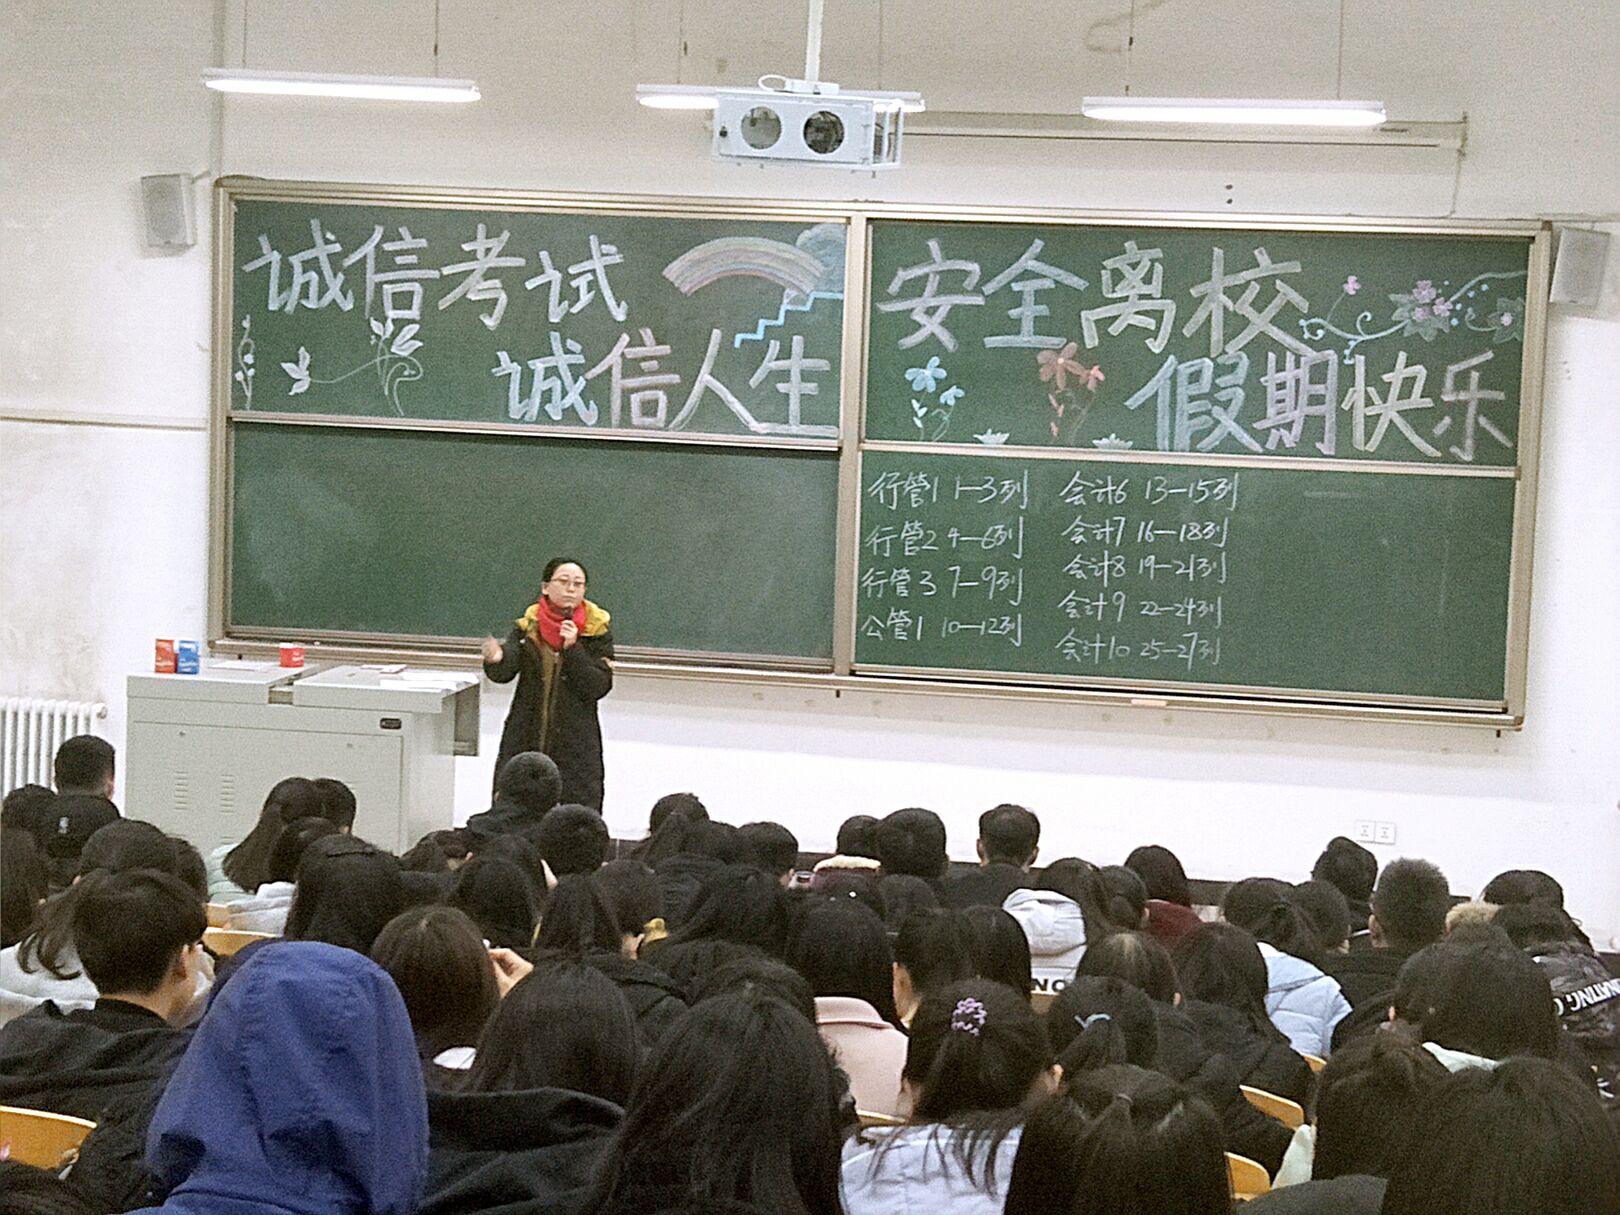 诚信考试
诚信人生
安全离校
假期快乐
行管1 1—3列
行管2 4—6列
行管3 7—9列
公管1 10—12列
会计6 13—15列
会计7 16—18列
会计8 19—21列
会计9 22—24列
会计10 25—27列
NO